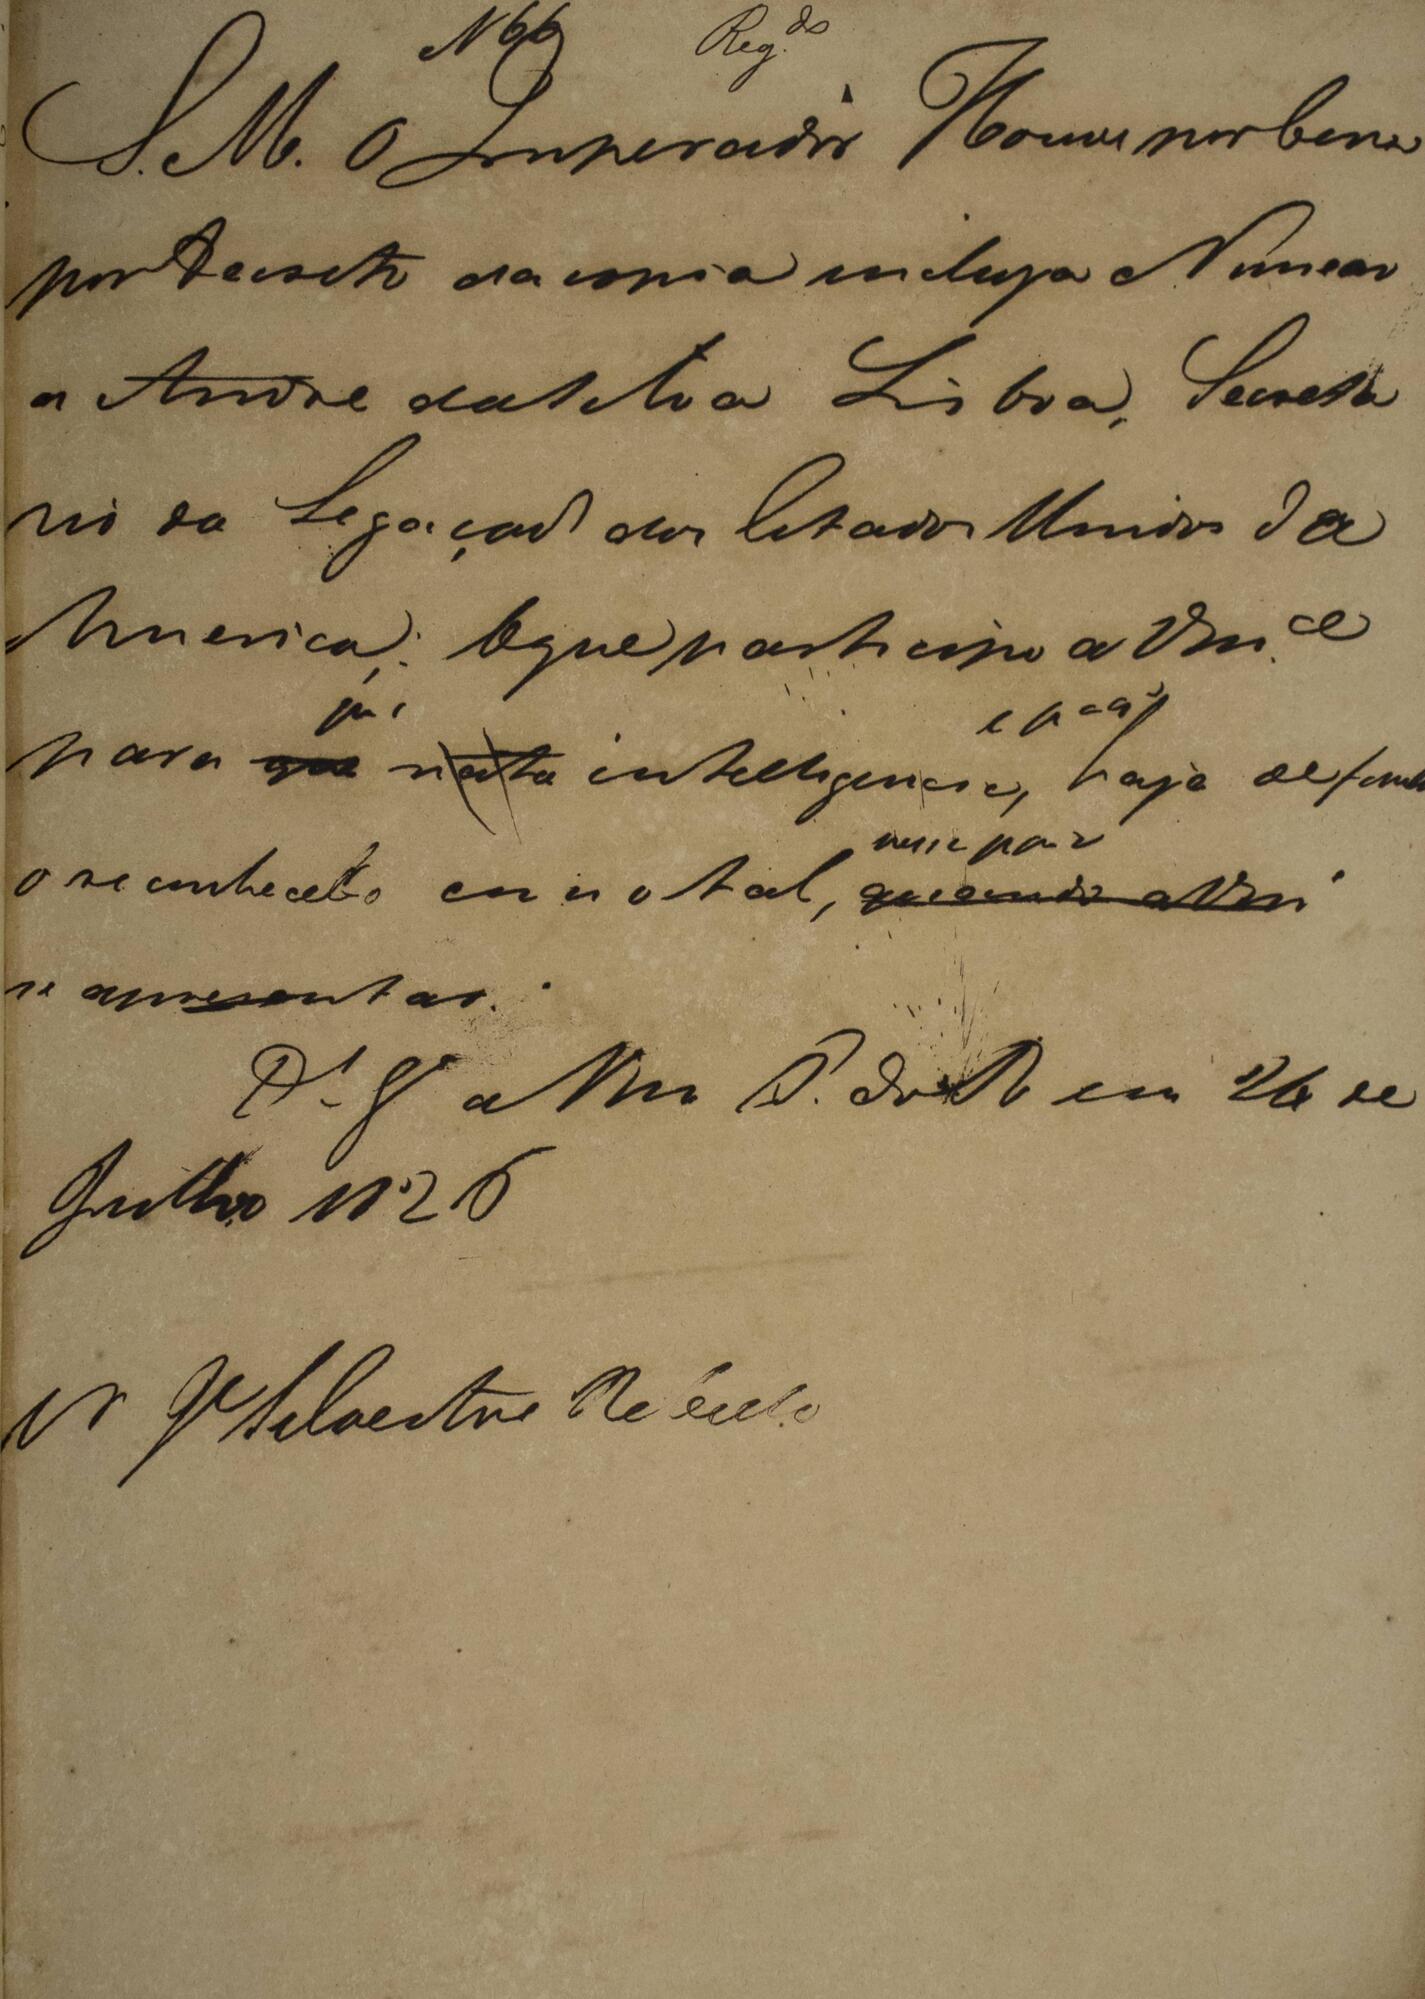 N 66 Reg.do
S. M. O Imperador Houve por bem
por Decreto da copia incluza Nomear
a Andre da Silva Lisboa, Secreta
rio da Legação dos Estados Unidos da
America; O que participo a Vm.ce
para que nesta intelligencia, haja de
o reconhecelo como tal, quando a Vm
nesse paiz
se apresentar.
D.s G.e a Vm P. do R em 26 de
Julho 1826
Sr Je Silvestre Rebello